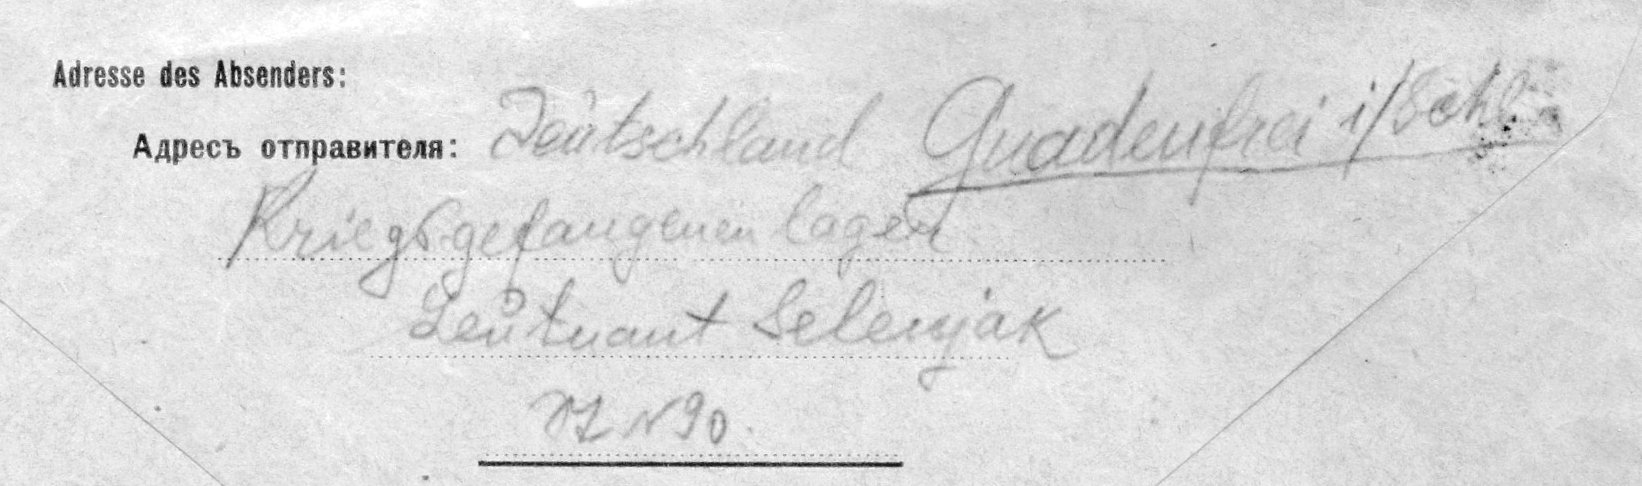 Adresse des Absenders:
Адресъ отправителя: Deutschland Gnadenfrei i/Schl
Kriegsgefangenenlager
Leutnant Selenjak
N90